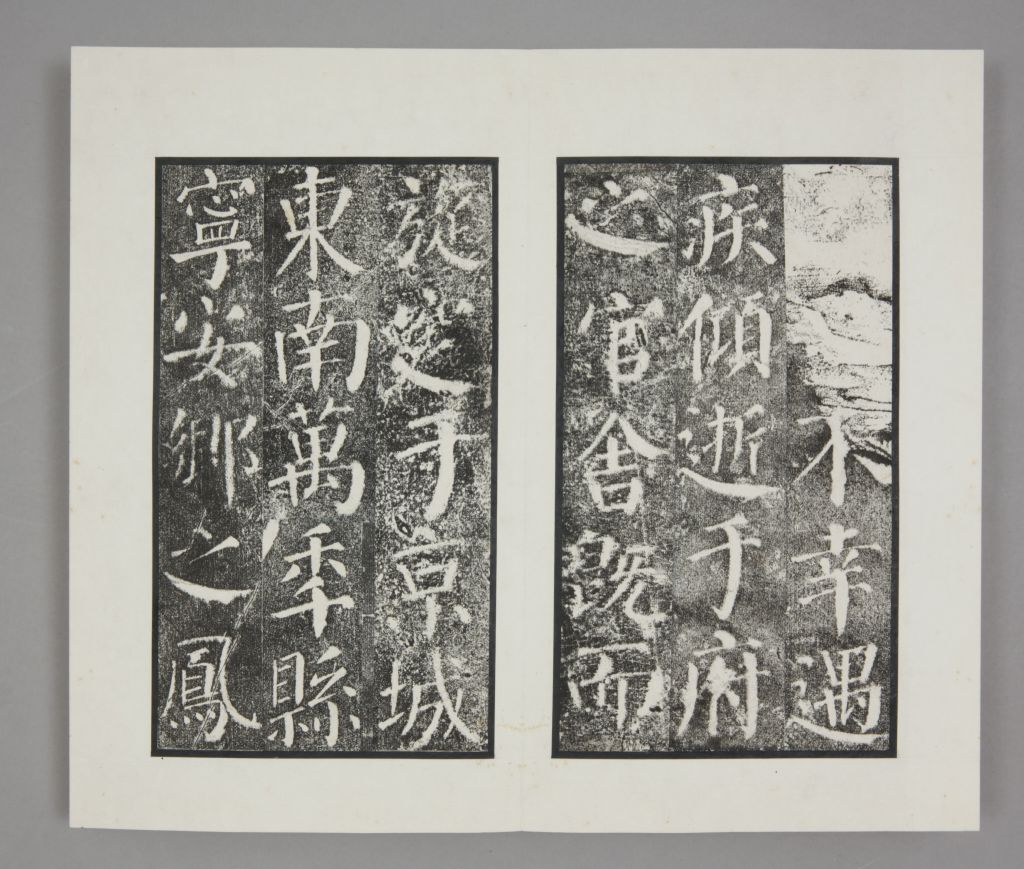 不幸遇
疾傾逝于府
之官舍既而
旋窆于亰城
東南萬秊縣
寧安鄉之鳳